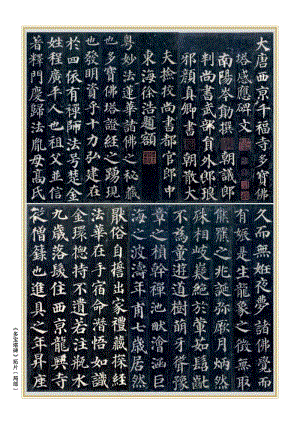 大唐西京千福寺多寶佛
塔感應碑文
南陽岑勛撰 朝議郎
判尚書武部員外郎琅
邪顏真卿書 朝散大
夫撿校尚書都官郎中
東海徐浩題額
粵妙法蓮華諸佛之秘藏
也多寶佛塔證經之踴現
也發明資乎十力弘建在
於四依有禪師法號楚金
姓程廣平人也祖父並信
著釋門慶歸法胤母高氏
久而無姙夜夢諸佛覺而
有娠是生龍象之徵無取
熊羆之兆誕彌厥月炳然
殊相岐嶷絕於葷茹髫齔
不為童遊道樹萌牙聳豫
章之楨幹禪池畎澮涵巨
海之波濤年甫七歲居然
猒俗自誓出家禮藏探經
法華在手宿命潛悟如識
金環總持不遺若注瓶水
九歲落髮住西京龍興寺
從僧籙也進具之年昇座
《多宝塔碑》拓片（局部）